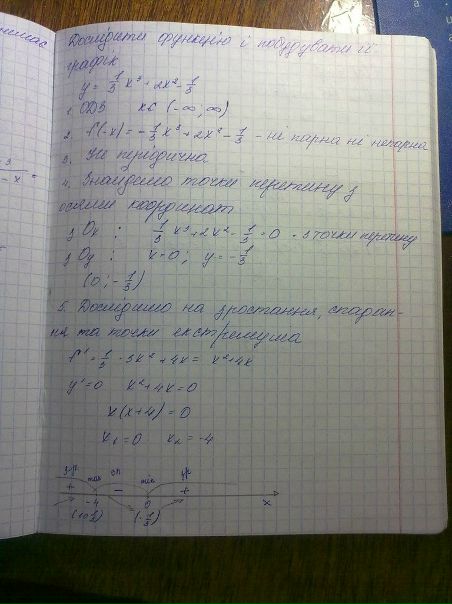 Дослідити функцію і побудувати її
графік
y = 1/3 x³ + 2x² - 1/3
1. ОДЗ x ∈ (-∞, ∞)
2. f(-x) = -1/3 x³ + 2x² - 1/3 - ні парна ні непарна
3. Не періодична
4. Знайдемо точки перетину з
осями координат
з Ox : 1/3 x³ + 2x² - 1/3 = 0 - 3 точки перетину
з Oy : x = 0 ; y = -1/3
(0 ; -1/3)
5. Дослідимо на зростання, спадан-
ня та точки екстремума
f' = 1/3 · 3x² + 4x = x² + 4x
y' = 0 x² + 4x = 0
x(x+4) = 0
x₁ = 0 x₂ = -4
зр max сп min зр
+ - +
-4 0 x
(-1/3)
- x